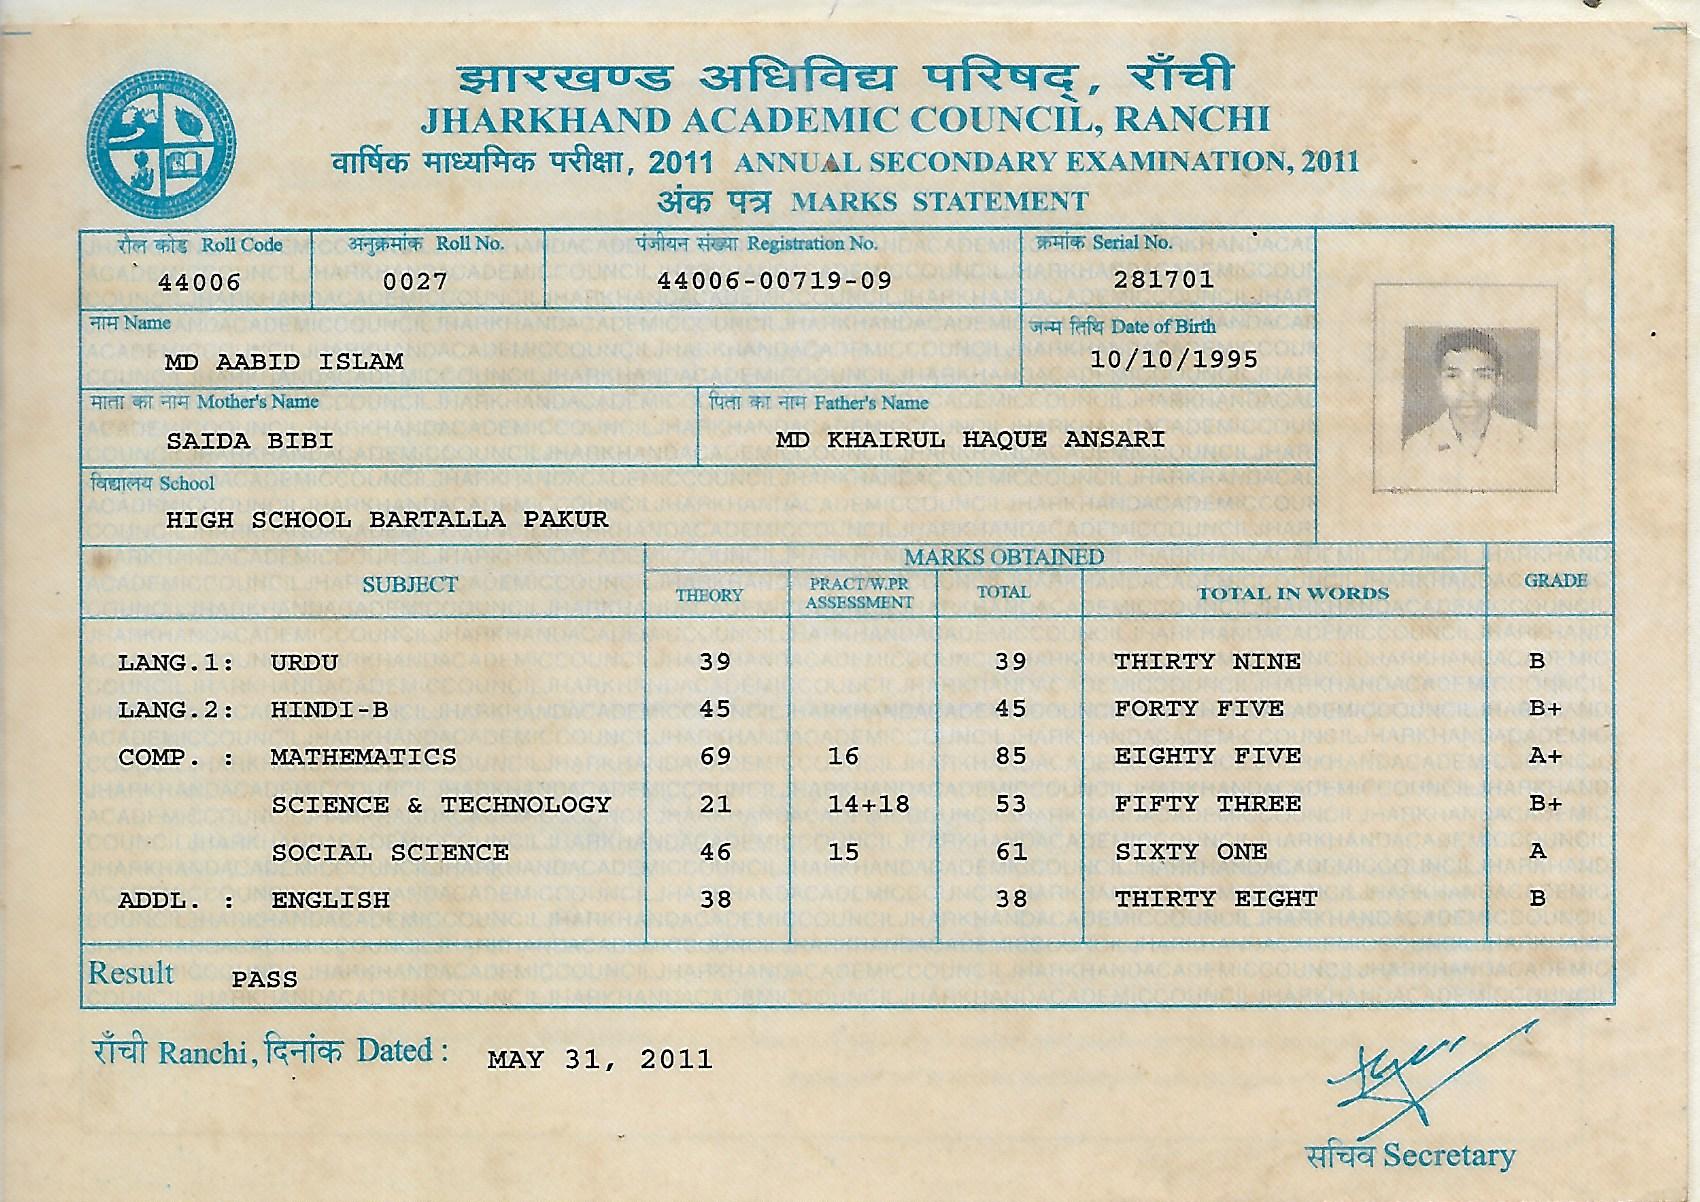 झारखण्ड अधिविद्य परिषद्, राँची
JHARKHAND ACADEMIC COUNCIL, RANCHI
वार्षिक माध्यमिक परीक्षा, 2011 ANNUAL SECONDARY EXAMINATION, 2011
अंक पत्र MARKS STATEMENT
रौल कोड Roll Code अनुक्रमांक Roll No. पंजीयन संख्या Registration No. क्रमांक Serial No.
44006 0027 44006-00719-09 281701
नाम Name जन्म तिथि Date of Birth
MD AABID ISLAM 10/10/1995
माता का नाम Mother's Name पिता का नाम Father's Name
SAIDA BIBI MD KHAIRUL HAQUE ANSARI
विद्यालय School
HIGH SCHOOL BARTALLA PAKUR
MARKS OBTAINED
SUBJECT THEORY PRACT/W.PR ASSESSMENT TOTAL TOTAL IN WORDS GRADE
LANG.1: URDU 39 39 THIRTY NINE B
LANG.2: HINDI-B 45 45 FORTY FIVE B+
COMP. : MATHEMATICS 69 16 85 EIGHTY FIVE A+
SCIENCE & TECHNOLOGY 21 14+18 53 FIFTY THREE B+
SOCIAL SCIENCE 46 15 61 SIXTY ONE A
ADDL. : ENGLISH 38 38 THIRTY EIGHT B
Result PASS
राँची Ranchi, दिनांक Dated : MAY 31, 2011
सचिव Secretary